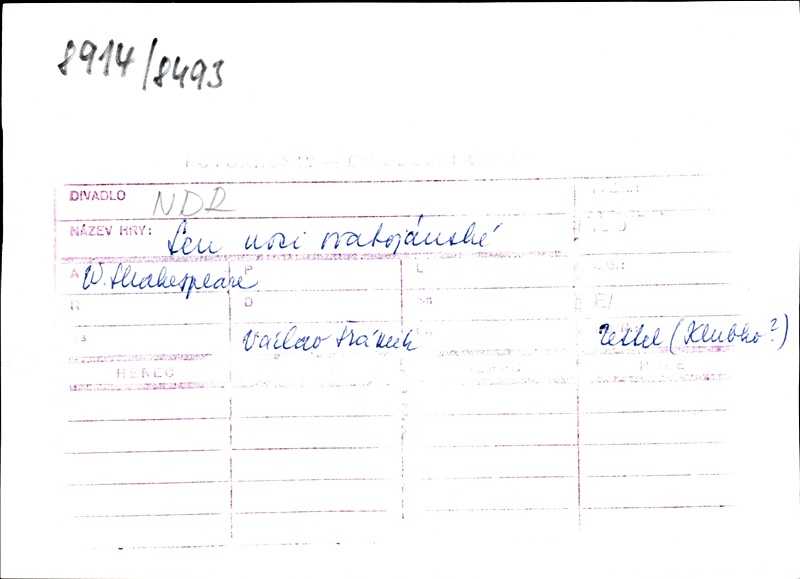 8914/8493
DIVADLO NDR
NÁZEV HRY: Sen noci svatojánské
A W. Shakespeare P L
R D
Václav
Zettel (Klubko?)
HEREC